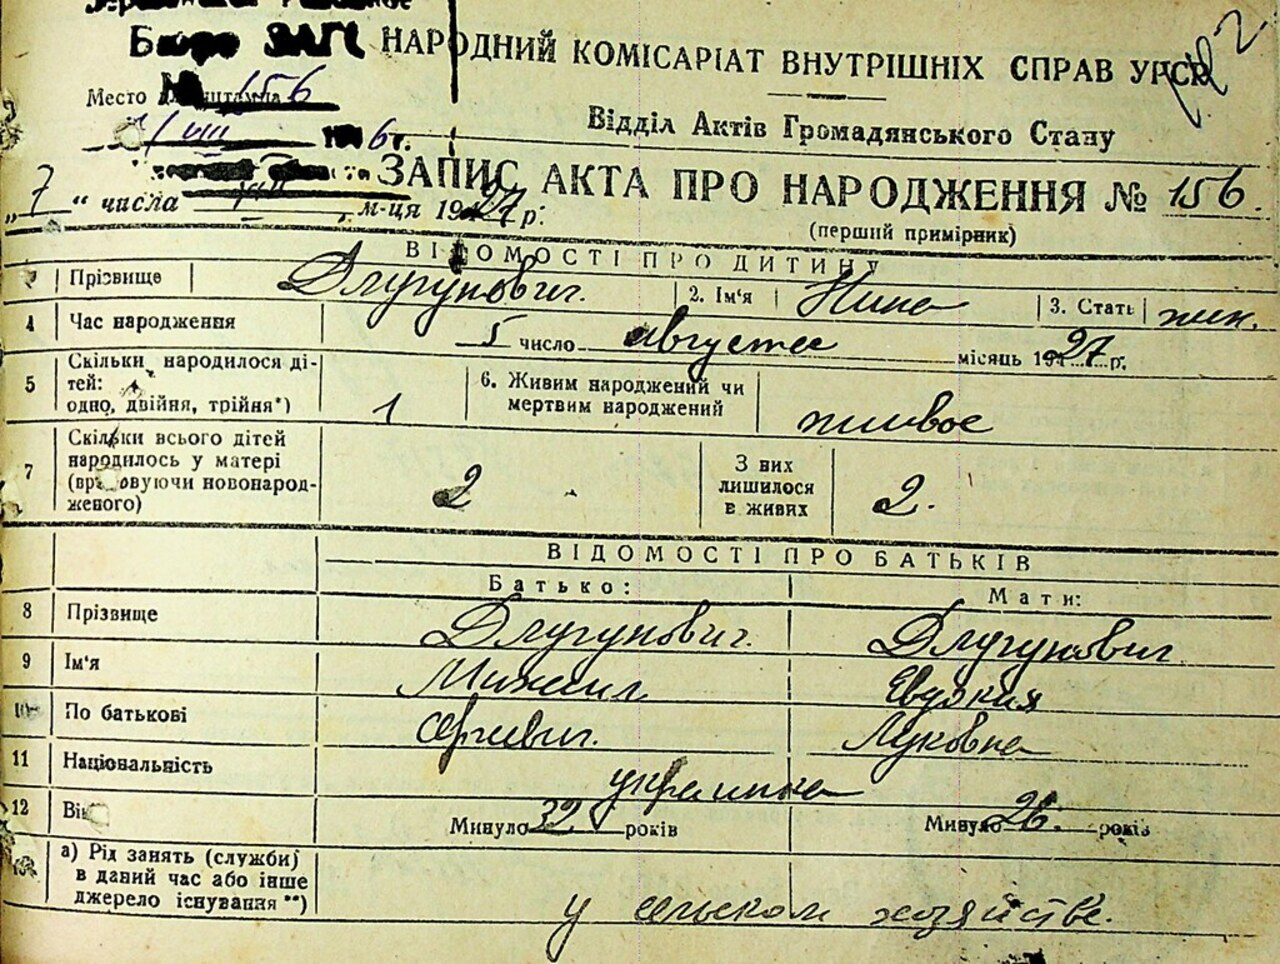 Бюро ЗАГС НАРОДНИЙ КОМІСАРІАТ ВНУТРІШНІХ СПРАВ УРСР
№ 156
Место для штампа
Відділ Актів Громадянського Стану
ЗАПИС АКТА ПРО НАРОДЖЕННЯ № 156.
„7“ числа VIII м-ця 1927 р.
(перший примірник)
ВІДОМОСТІ ПРО ДИТИНУ
Прізвище Длугунович. 2. Ім'я Нина 3. Стать жен.
4 Час народження 5 число августа місяць 1927 р.
5 Скільки народилося ді-
тей:
одно, двійня, трійня*) 1
6. Живим народжений чи
мертвим народжений живое
7 Скільки всього дітей
народилось у матері
(враховуючи новонарод-
женого) 2
З них
лишилося
в живих 2.
ВІДОМОСТІ ПРО БАТЬКІВ
Батько: Мати:
8 Прізвище Длугунович. Длугунович
9 Ім'я Михаил Евдокия
10 По батькові Сергеевич. Луковна
11 Національність украинцы
12 Вік Минуло 32 років Минуло 26. років
а) Рід занять (служби)
в даний час або інше
джерело існування**)
у сельском хозяйстве.